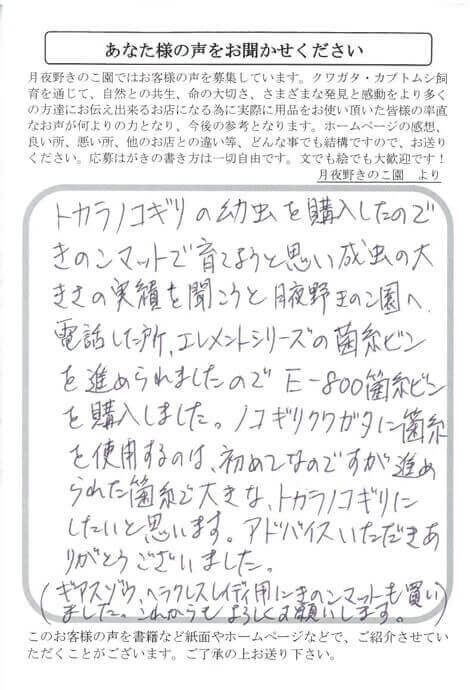 あなた様の声をお聞かせください
月夜野きのこ園ではお客様の声を募集しています。クワガタ・カブトムシ飼
育を通じて、自然との共生、命の大切さ、さまざまな発見と感動をより多く
の方達にお伝え出来るお店になる為に実際に用品をお使い頂いた皆様の率直
なお声が何よりの力となり、今後の参考となります。ホームページの感想、
良い所、悪い所、他のお店との違い等、どんな事でも結構ですので、お送り
ください。応募はがきの書き方は一切自由です。文でも絵でも大歓迎です！
月夜野きのこ園　より
トカラノコギリの幼虫を購入したので
きのこマットで育てようと思い成虫の大
きさの実績を聞こうと月夜野きのこ園へ
電話した所、エレメントシリーズの菌糸ビン
を進められましたのでE-800菌糸ビン
を購入しました。ノコギリクワガタに菌糸
を使用するのは、初めてなのですが進め
られた菌糸で大きな、トカラノコギリに
したいと思います。アドバイスいただきあ
りがとうございました。
(ギアスゾウ、ヘラクレスレイディ用にきのこマットも買い
ました。これからもよろしくお願いします。)
このお客様の声を書籍など紙面やホームページなどで、ご紹介させてい
ただくことがございます。ご了承の上お送り下さい。